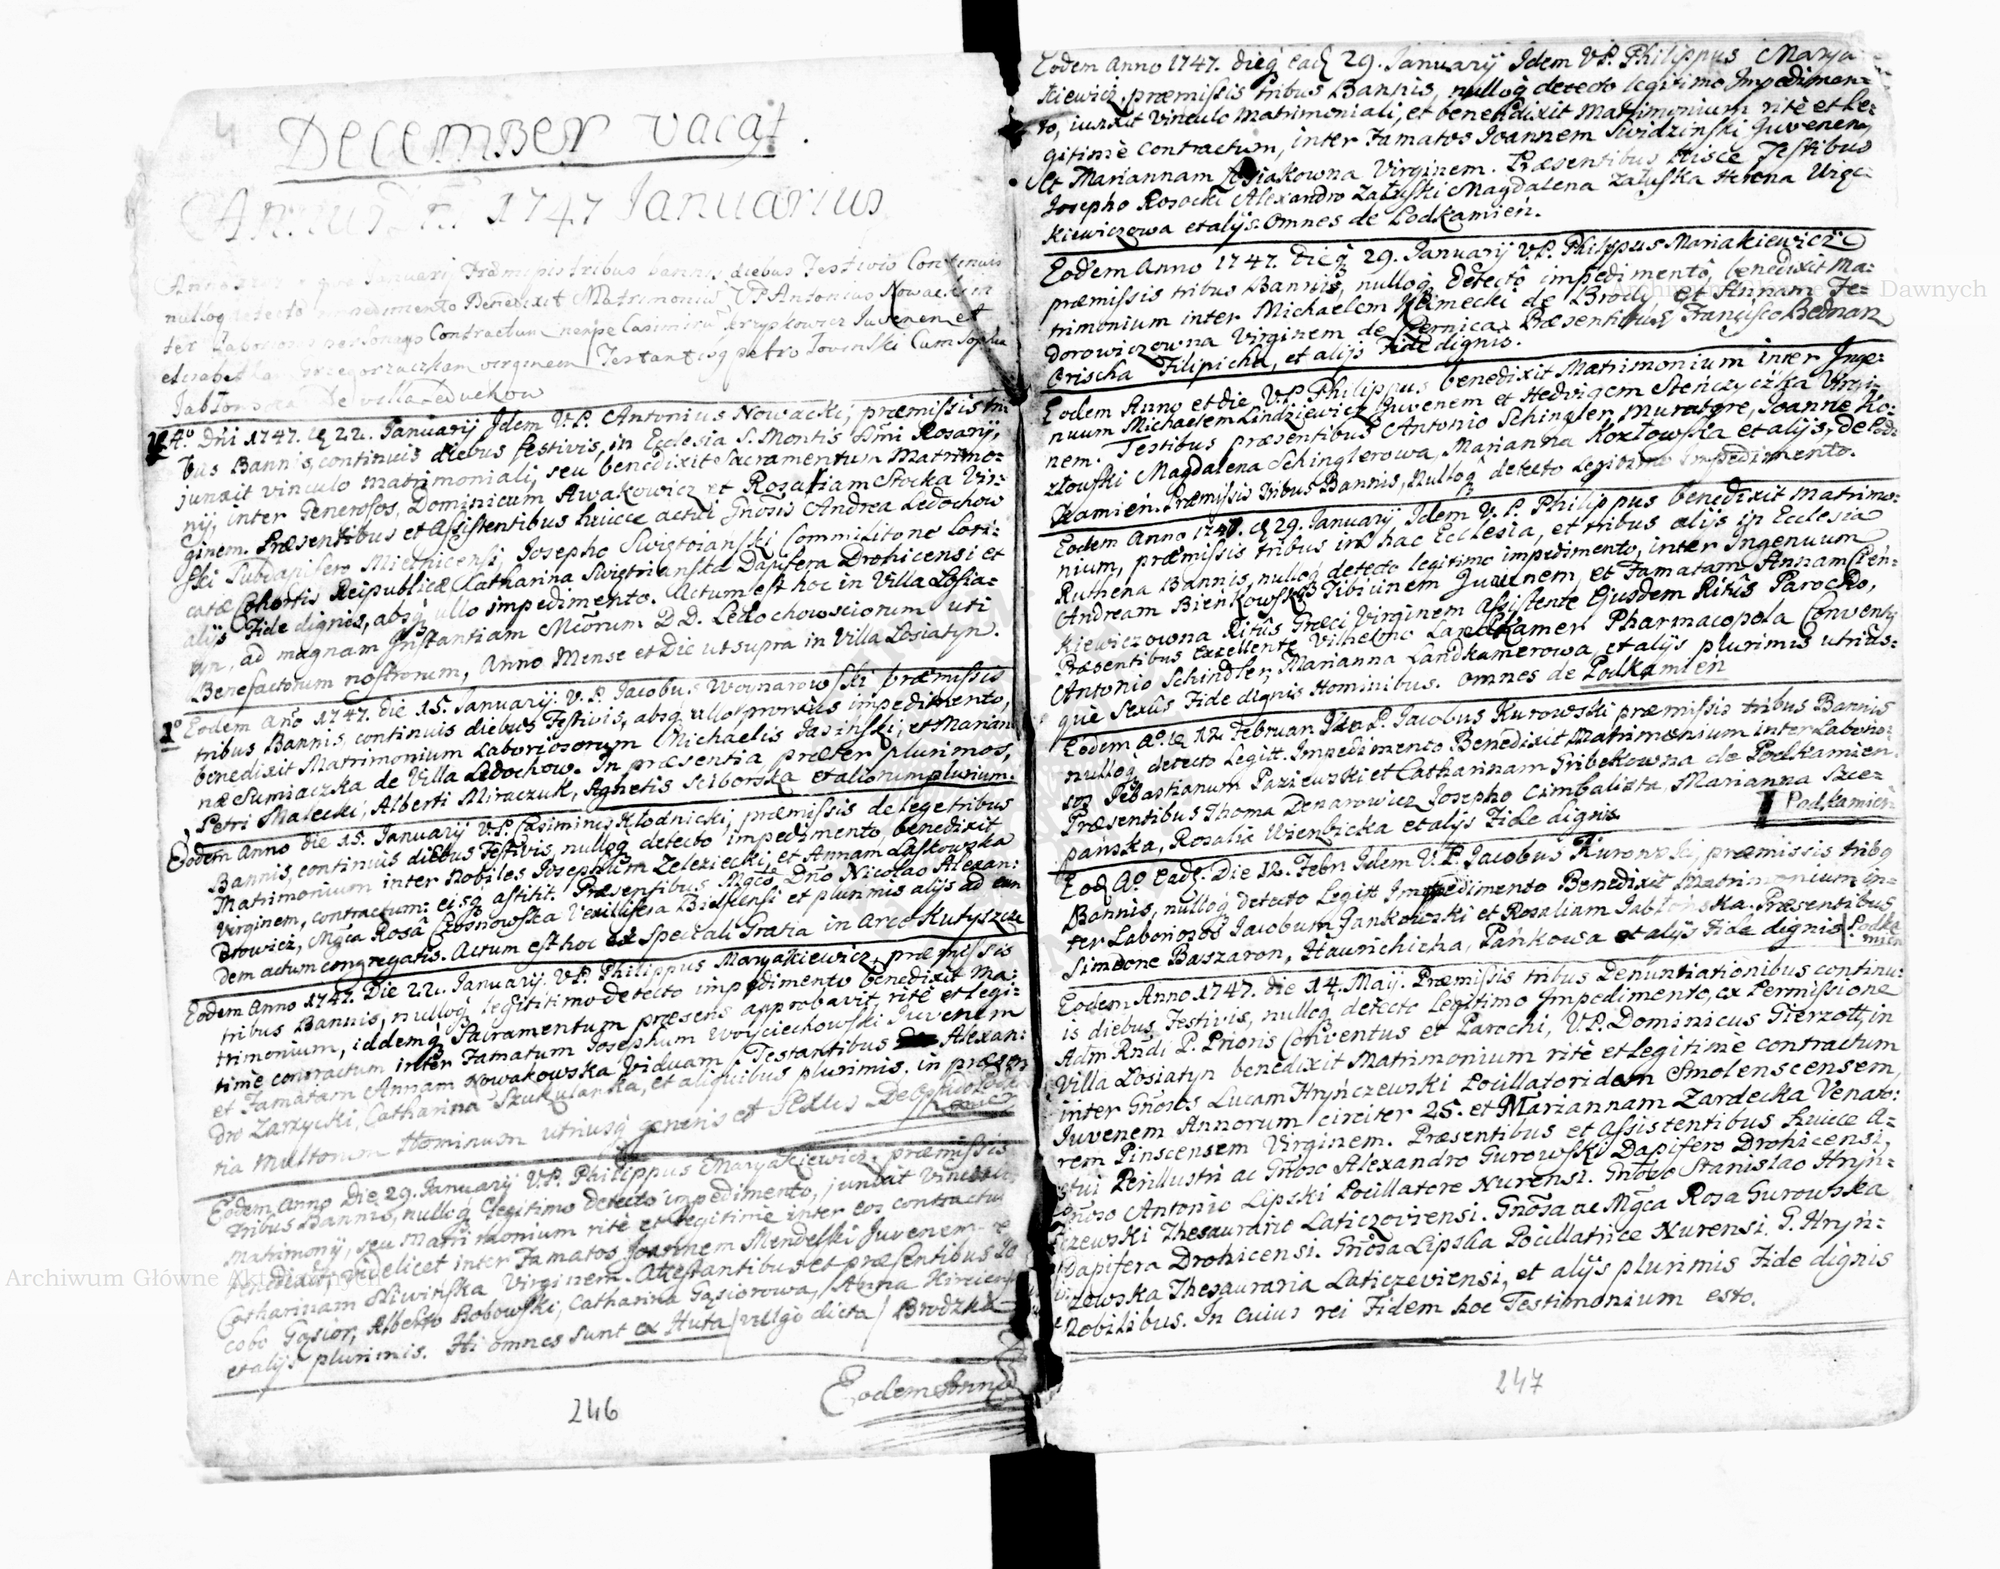 December vacat.
Annus Dni 1747 Januarius
Anno Januarij Præmissis tribus bannis diebus Festivis Continuis
nulloq detecto impedimento Benedixit Matrimonium V.P. Antonius Nowacki in
ter Laboriosos personas Contractum nempe Casimirum Krzypkowicz Juvenem et
Elisabetham virginem Testantibq Petro Cum Sophia
Jabłonska De villa Leduchow
4º Dñi 1747. q 22. Januarij Idem V.P. Antonius Nowacki, præmissis tri-
bus Bannis, continuis diebus festivis, in Ecclesia S. Montis SSmi Rosarij,
junxit vinculo matrimoniali, seu benedixit Sacramentum Matrimo-
nij, inter Generosos, Dominicum Awakowicz et Rosaliam Stocka Vir-
ginem. Præsentibus et Assistentibus huicce actui Gnosis Andrea Ledochow
ski Subdapifero Mielnicensi, Josepho Swiętoianski Commilitone Lori-
catæ Cohortis Reipublicæ Catharina Swiętoianska Dapifera Drohicensi et
alijs Fide dignis, absq ullo impedimento. Actum est hoc in Villa Losia-
tyn, ad magnam Instantiam Mcorum D.D. Ledochowsciorum uti
Benefactorum nostrorum, Anno Mense et Die ut supra in Villa Losiatyn.
1º Eodem Año 1747. die 15. Januarij. V.P. Jacobus Woynarowski præmissis
tribus Bannis, continuis diebus Festivis, absq ullo prorsus impedimento,
benedixit Matrimonium Laboriosorum Michaelis Jasinski, et Marian-
næ Sumiaczka de Villa Ledochow. In præsentia præter plurimos,
Petri Malecki, Alberti Miraczuk, Aghetis Sciborska et aliorum plurium.
Eodem Anno die 15. Januarij V.P. Casimirus Kłodnicki, præmissis de lege tribus
Bannis, continuis diebus Festivis, nulloq detecto impedimento, benedixit
Matrimonium inter Nobiles Josephum Zeleziecki, et Annam Laskowska
Virginem, contractum: eisq astitit. Præsentibus Mgco Dno Nicolao Alexan-
drowicz, Mgca Rosâ Czosnowska Vexillifera Bielscensi et plurimis alijs ad eun
dem actum congregatis. Actum est hoc ex speciali Gratia in Arce Kutyszcze
Eodem Anno 1747. Die 22. Januarij. V.P. Philippus Maryakiewicz, præmissis
tribus Bannis, nulloq legitimo detecto impedimento benedixit Ma-
trimonium, iddemq Sacramentum præsens approbavit, rité et legi-
timè contractum inter Famatum Josephum Woyciechowski Juvenem
et Famatam Annam Nowakowska Viduam. Testantibus Alexan-
dro Zarzycki, Catharina Szukulanka, et aliquibus plurimis. in præsen
tia multorum Hominum utriusq generis et Sexus
Eodem Anno Die 29. Januarij V.P. Philippus Maryakiewicz, præmissis
tribus Bannis, nulloq Legitimo detecto impedimento, junxit Vinculo
Matrimonij, seu Matrimonium rité et legitimè inter eos contractum
benedixit, videlicet inter Famatos Joannem Mendelski Juvenem et
Catharinam Sliwinska Virginem. Attestantibus et præsentibus Ja
cobo Gąsior, Alberto Bobowski, Catharina Gąsiorowa, Anna
et alijs plurimis. Hi omnes sunt ex Huta / vulgò dicta / Brodzka
Eodem Anno
246
Eodem Anno 1747. dieq eadē 29. Januarij Idem V.P. Philippus Marya
kiewicz, præmissis tribus Bannis, nulloq detecto legitimo Impedimen-
to, iunxit vinculo matrimoniali, et benedixit Matrimonium ritè et le-
gitimè contractum, inter Famatos Joannem Swidzinski Juvenem
et Mariannam Virginem. Præsentibus hisce Testibus
Josepho Rosocki Alexandro Załuski Magdalena Załuska Helena
kiewiczowa et alijs. Omnes de Podkamień.
Eodem Anno 1747. Die q 29. Januarij V.P. Philippus Mariakiewicz
præmissis tribus Bannis, nulloq detectô impedimentô, benedixit Ma-
trimonium inter Michaelem Niemecki de Brody, et Annam Fe-
dorowiczowna Virginem de Czernica. Præsentibus Francisco Bednarz
Oriszka Filipicha, et alijs Fide dignis.
Eodem Anno et die V.P. Philippus benedixit Matrimonium inter Inge-
nuum Michaelem Lindziewicz Juvenem et Hedvigem Stenczyczka Virgi-
nem. Testibus præsentibus Antonio Schingler, Muratore, Joanne Ko-
złowski Magdalena Schinglerowa, Marianna Kozłowska et alijs, de Pod-
kamień. Præmissis tribus Bannis, Nulloq detecto legitimo Impedimento.
Eodem Anno 1747. q 29. Januarij. Idem V.P. Philippus benedixit Matrimo-
nium, præmissis tribus in hac Ecclesia, et tribus alijs in Ecclesia
Ruthena Bannis, nulloq detecto legitimo impedimento, inter Ingenuum
Andream Bieńkowski Tibicinem Juvenem, et Famatam Annam
kiewiczowna Ritûs Græci Virginem Assistente Ejusdem Ritûs Parocho,
Præsentibus Excellente Vilhelmo Landkamer Pharmacopola Conventus
Antonio Schindler, Marianna Landkamerowa, et alijs plurimis utrius-
què Sexûs Fide dignis Hominibus. Omnes de Podkamień
Eodem Aº. q 12. Februar. V.P. Jacobus Kurowski præmissis tribus Bannis
nulloq detecto Legitt. Impedimento Benedixit Matrimonium inter Laborio-
sos Sebastianum Paziewski et Catharinam Gribekowna de Podkamien.
Præsentibus Thoma Denarowicz Josepho Cimbalista, Marianna Szcze-
panska, Rosalia Wierbicka et alijs Fide dignis
Podkamień
Eod Aº. Eadē. Die 12. Febr. Idem V.P. Jacobus Kurowski, præmissis tribq
Bannis, nulloq detecto Legitt Impedimento Benedixit Matrimonium in-
ter Laboriosos Jacobum Jankowski et Rosaliam Jabłonska. Præsentibus
Simeone Baszaron, Hawrichicha, Pańkowa et alijs Fide dignis | Podka
mień
Eodem Anno 1747. die 14. Maij. Præmissis tribus Denuntiationibus continu-
is diebus Festivis, nulloq detecto Legitimo Impedimento, ex Permissione
Adm Rndi P. Prioris Conventus et Parochi, V.P. Dominicus Gierzott, in
Villa Losiatyn benedixit Matrimonium ritè et legitimè contractum
inter Gnosos Lucam Hryńczewski Pocillatoridem Smolenscensem,
Juvenem Annorum circiter 25. et Mariannam Zardecka Venato-
rem Pinscensem Virginem. Præsentibus et Assistentibus huicce A-
ctui Perillustri ac Gnoso Alexandro Gurowski Dapifero Drohicensi,
Gnoso Antonio Lipski Pocillatore Nurensi. Gnoso Stanislao Hryń-
czewski Thesaurario Laticzoviensi. Gnosa ac Mgca Rosa Gurowska
Dapifera Drohicensi. Gnosa Lipska Pocillatrice Nurensi, G. Hryń-
czewska Thesauraria Laticzeviensi, et alijs plurimis Fide dignis
Nobilibus. In cuius rei Fidem hoc Testimonium esto.
247
Archiwum Główne Akt Dawnych